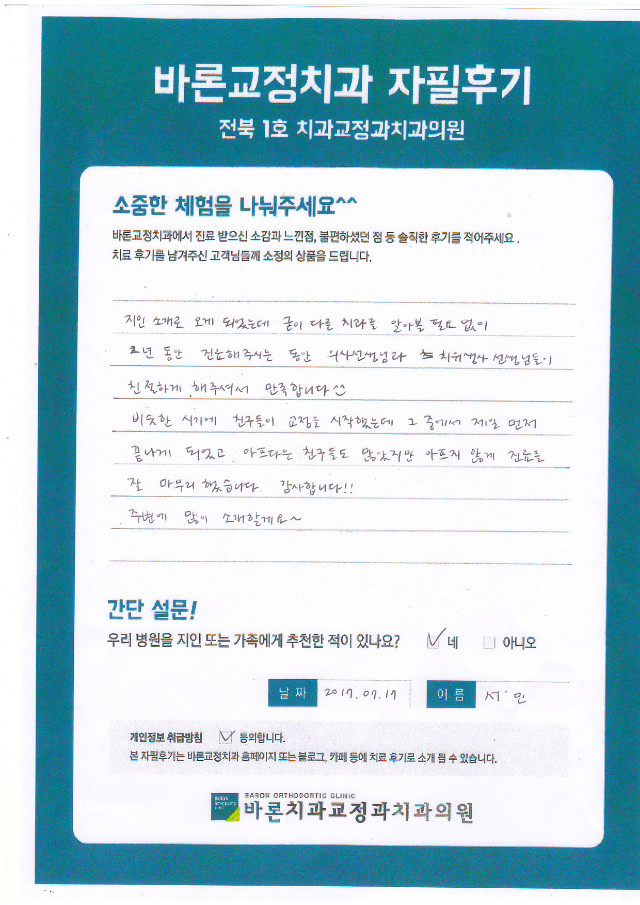 바론교정치과 자필후기
전북 1호 치과교정과치과의원
소중한 체험을 나눠주세요^^
바론교정치과에서 진료 받으신 소감과 느낀점, 불편하셨던 점 등 솔직한 후기를 적어주세요.
치료 후기를 남겨주신 고객님들께 소정의 상품을 드립니다.
지인 소개로 오게 되었는데 굳이 다른 치과를 알아볼 필요 없이
2년 동안 진료해주시는 동안 의사선생님과 치위생사 선생님들이
친절하게 해주셔서 만족합니다
비슷한 시기에 친구들이 교정을 시작했는데 그 중에서 제일 먼저
끝나게 되었고 아프다는 친구들도 많았지만 아프지 않게 진료를
잘 마무리 했습니다. 감사합니다!!
주변에 많이 소개할게요~
간단 설문!
우리 병원을 지인 또는 가족에게 추천한 적이 있나요? 네 아니오
날짜 2017.07.17 이름 서 인
개인정보 취급방침 동의합니다.
본 자필후기는 바론교정치과 홈페이지 또는 블로그, 카페 등에 치료 후기로 소개 될 수 있습니다.
BARON ORTHODONTIC CLINIC
바론치과교정과치과의원